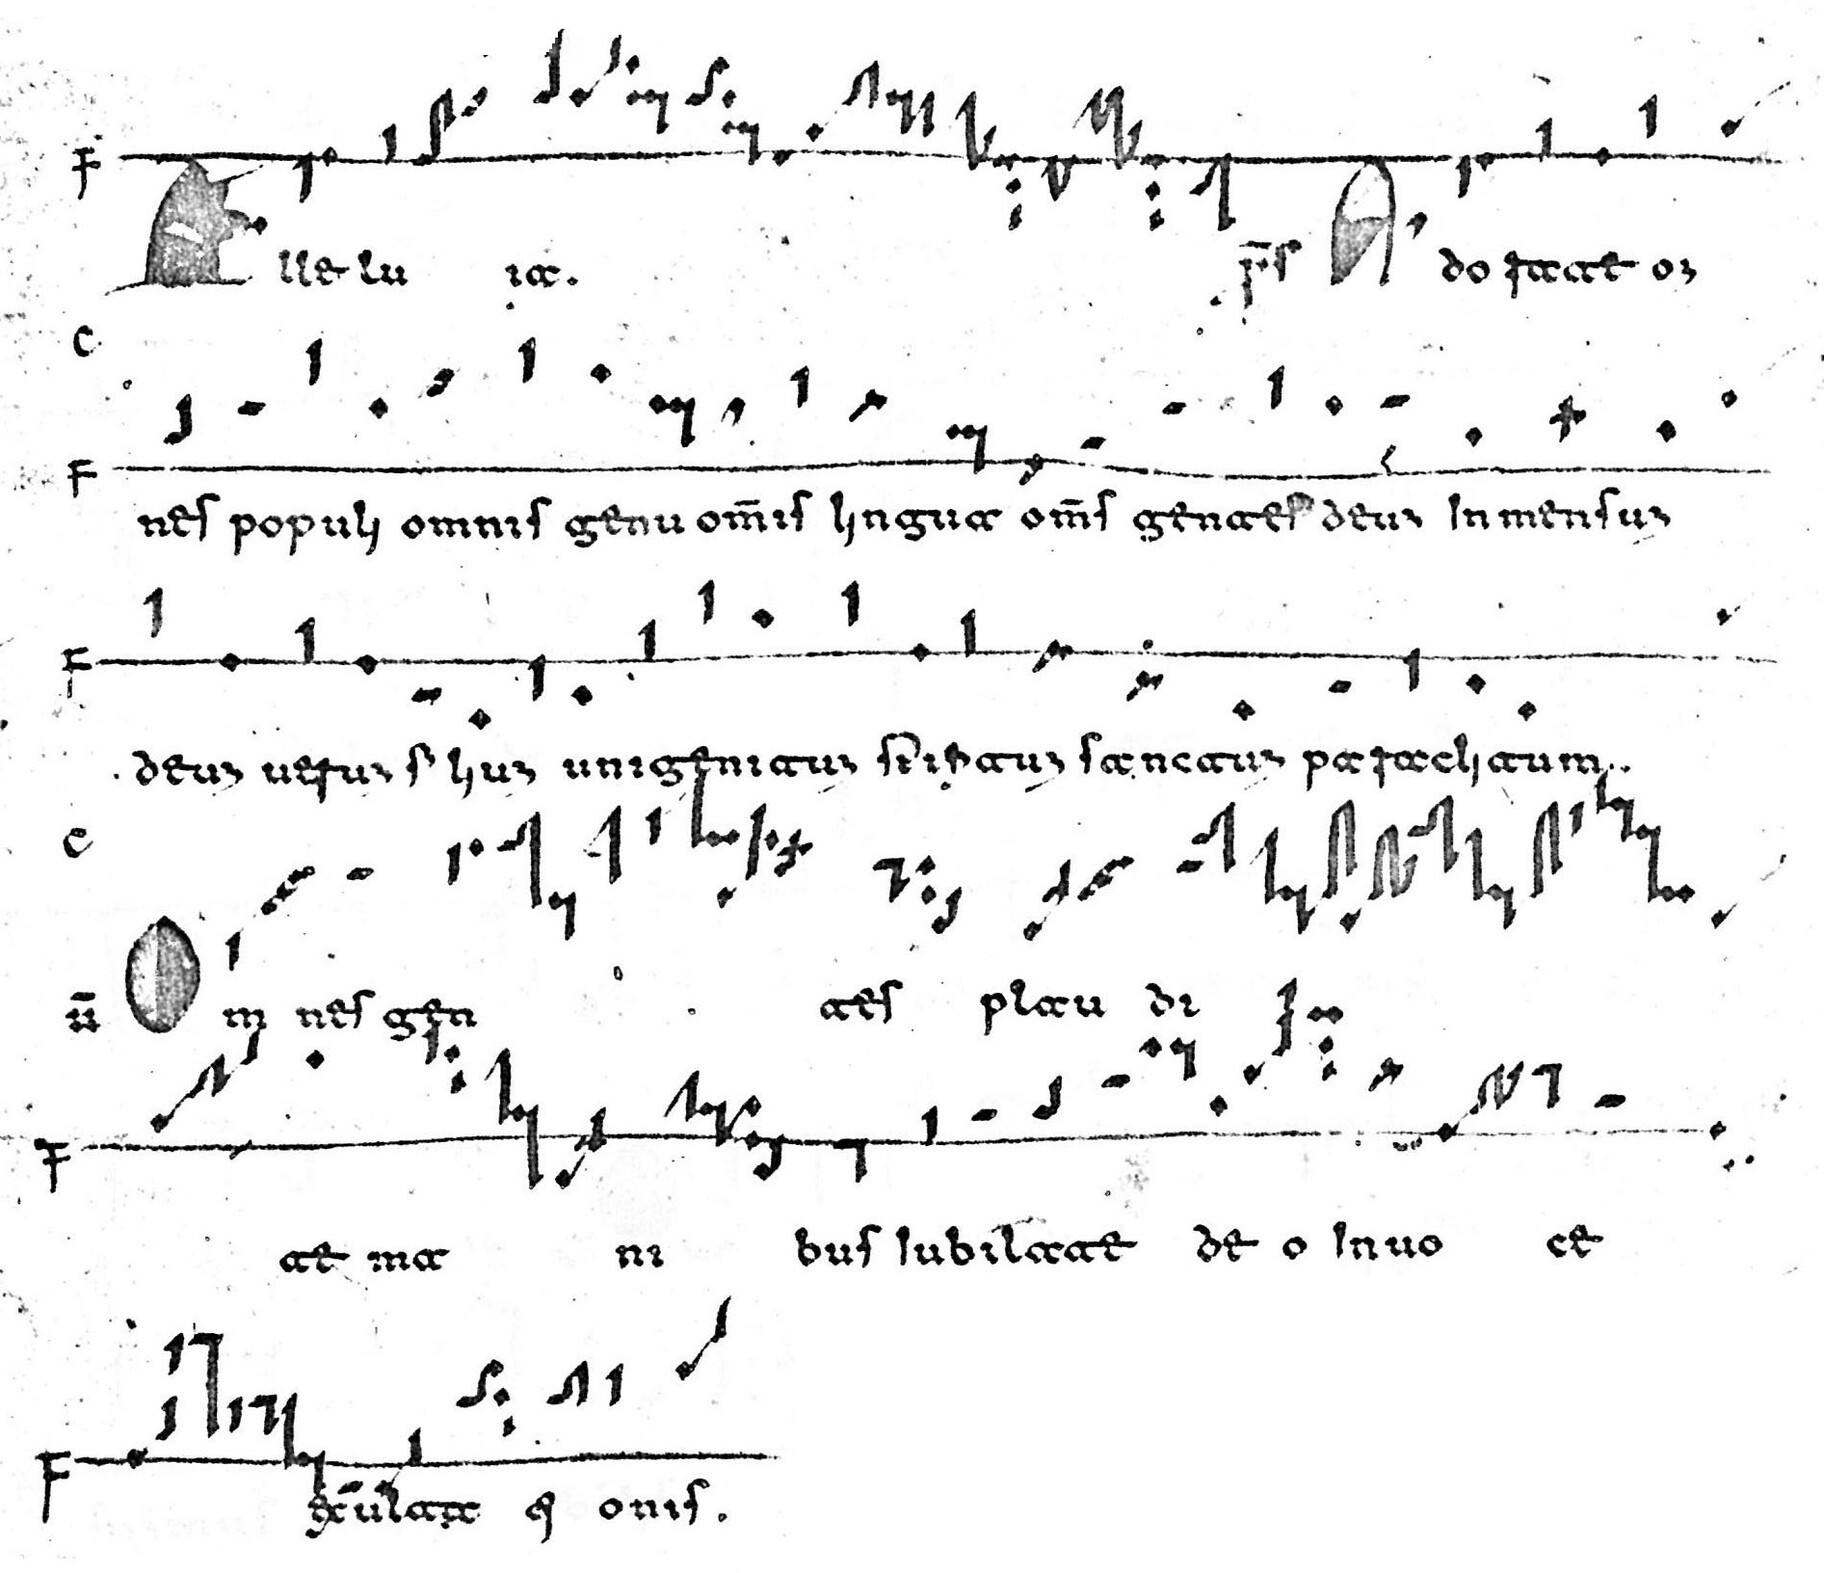 A lle lu ia. p̄s A do rate om
nes populi omnis genu om̄is lingua om̄s gentes deus Inmensus
deus uerus filius unigenitus sp̄iritus sanctus paraclitum.
v̄ Om nes gen tes plau di
te ma ni bus Iubilate de o In uo ce
exultati onis.